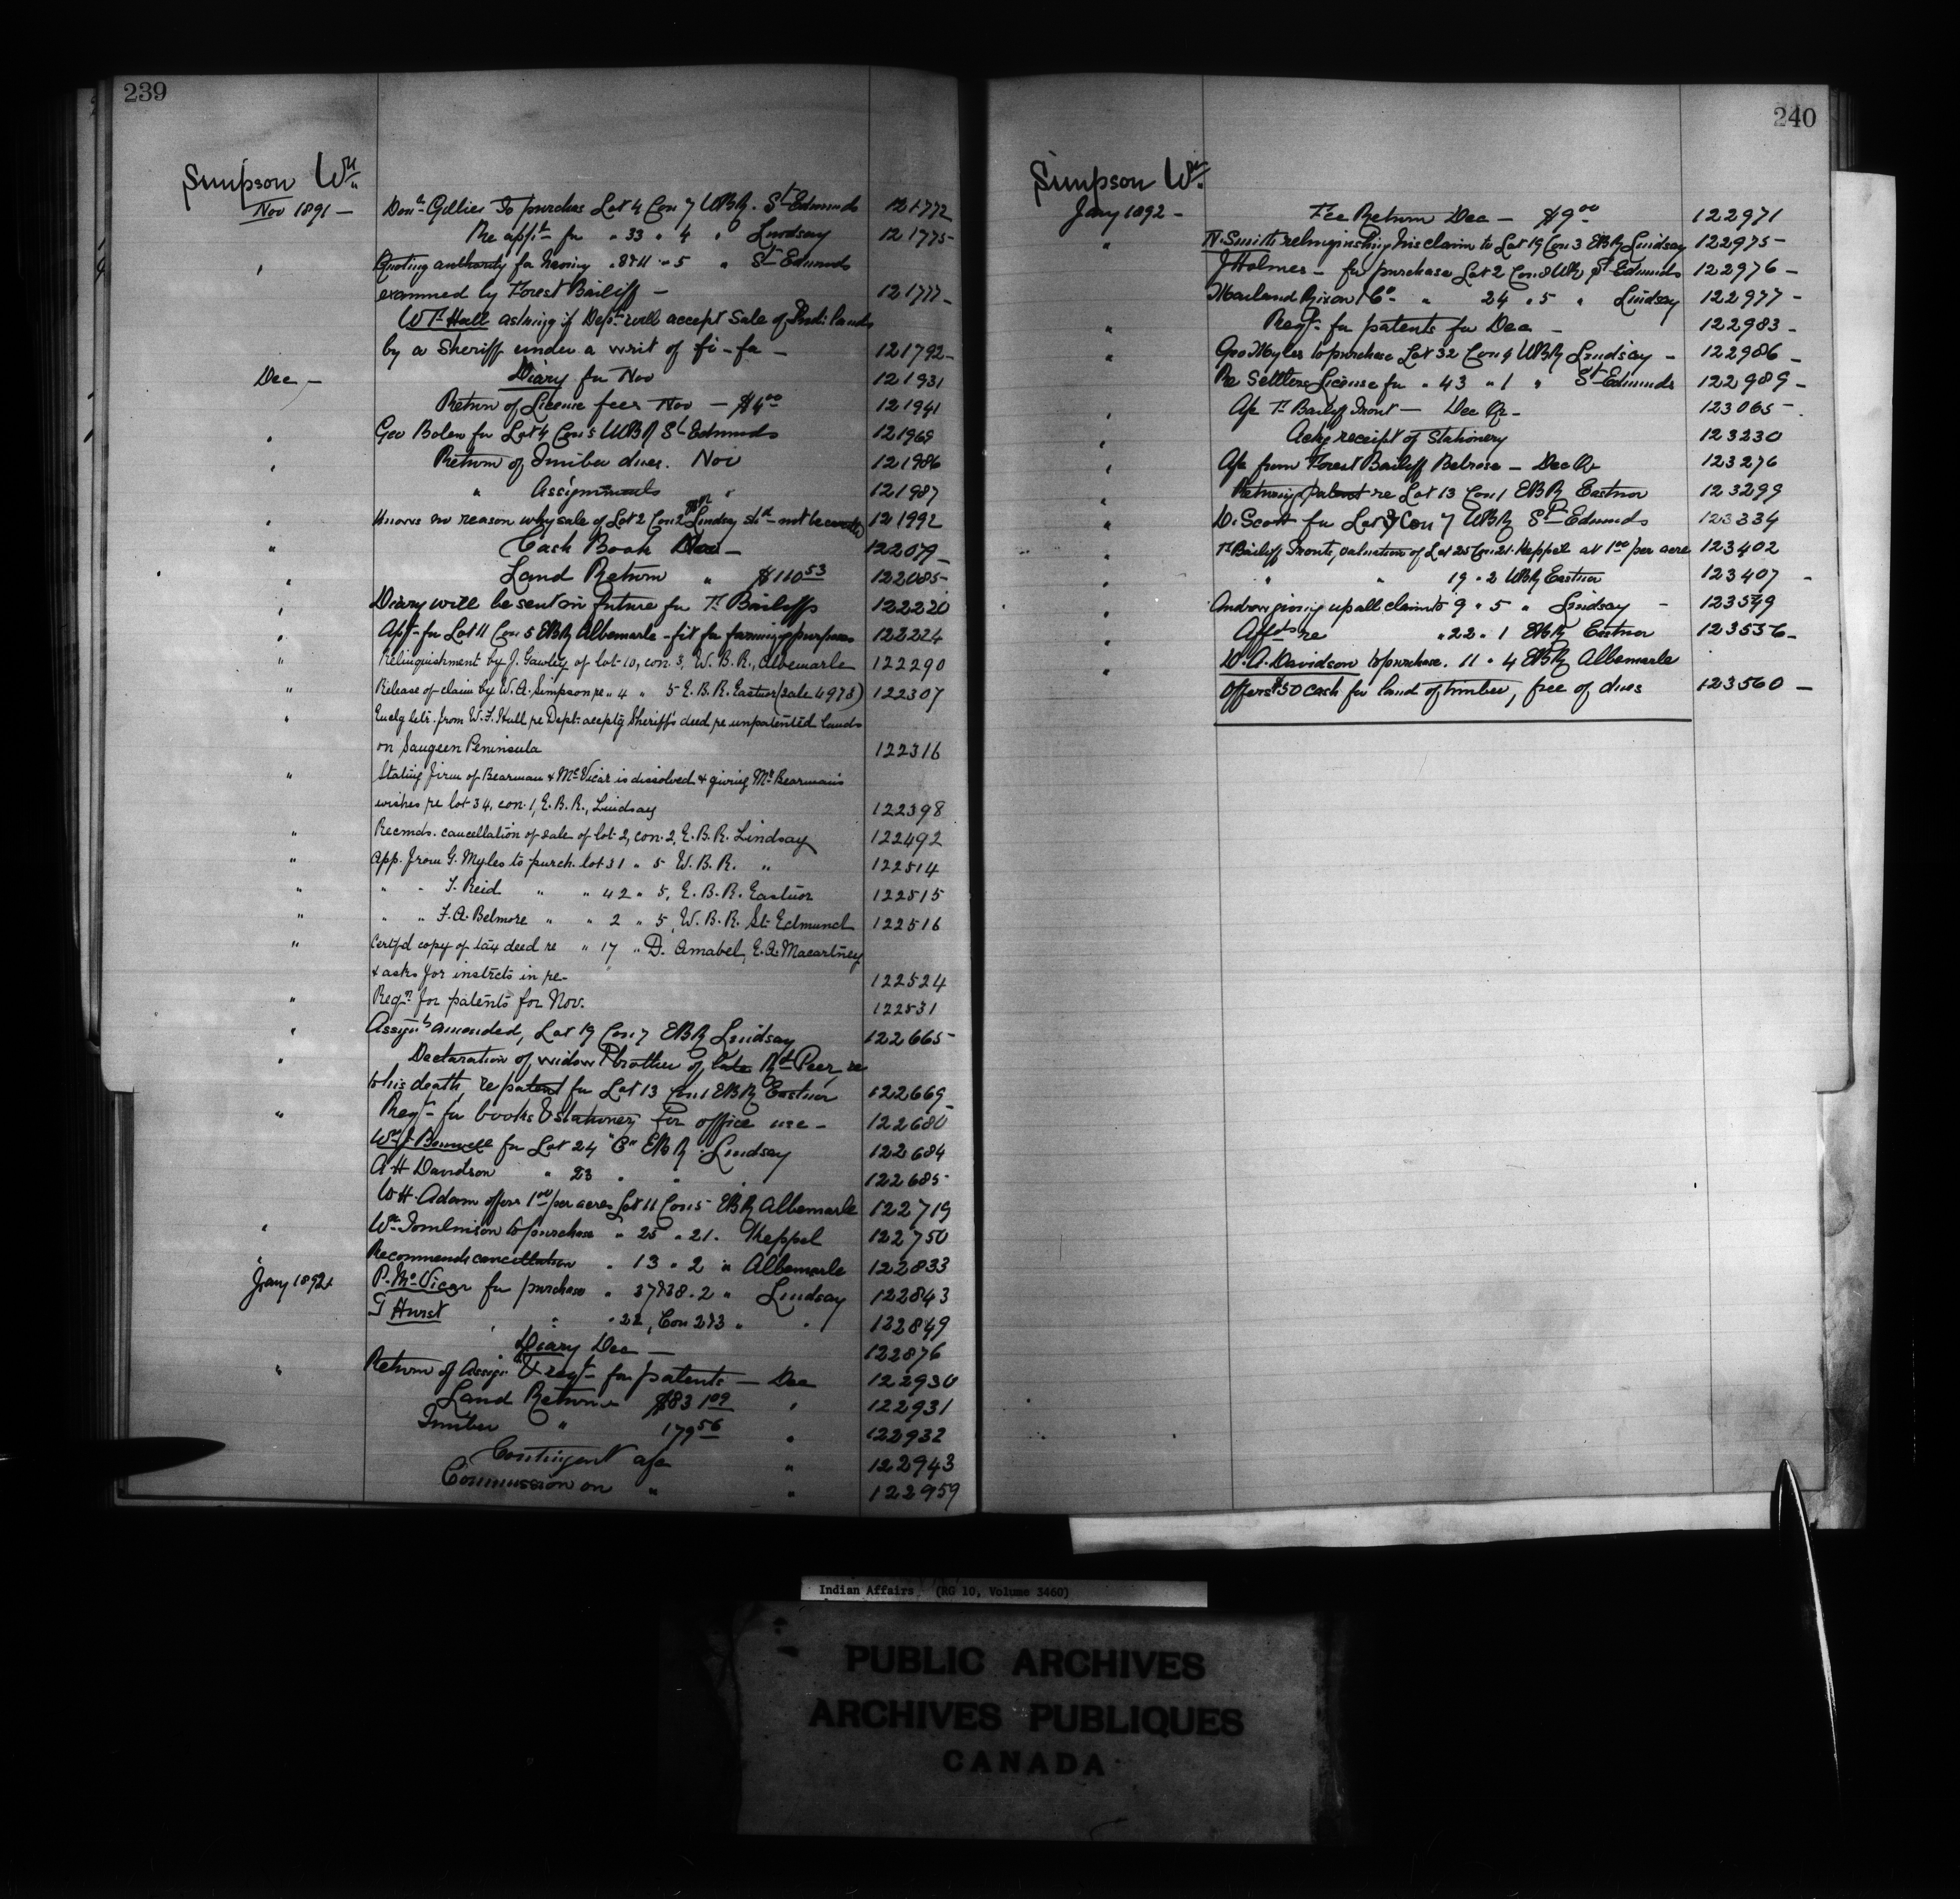 239
Simpson Wm
Nov 1891 — Don. Gillies to purchas Lot 4 Con 7 WBR. St Edmunds 121772
Re appt for " 33 " 4 " Lindsay 121775-
" Quoting authority for having " 8 & 11 " 5 " St Edmunds
examined by Forest Bailiff — 121777-
W T. Hall asking if Dept will accept sale of Indi lands
by a Sheriff under a writ of fi-fa — 121792-
Dec — Diary for Nov 121931
Return of License fees Nov — $4.00 121941
" Geo Bolen for Lot 4 Con 5 WBR St Edmunds 121969
" Return of Timber dues. Nov 121986
" Assignments " 121987
" Knows no reason why sale of Lot 2 Con 2 EBR Lindsay shd not be 121992
" Cash Book Nov — 122079-
" Land Return " $110.53 122085-
" Diary will be sent in future for Tr Bailiffs 122220
" Apt- for Lot 11 Con 5 EBR Albemarle - fit for farming purposes 122224
" Relinquishment by J. Gawley of lot 10, con. 3, W. B. R., Albemarle 122290
" Release of claim by W. A. Simpson re " 4 " 5 E. B. R. Eastnor (sale 4973) 122307
" Enclg letr. from W. F. Hall re Dept. acceptg Sheriff's deed re unpatented lands
on Saugeen Peninsula 122316
" Stating firm of Bearman & McVicar is dissolved & giving Mr Bearman's
wishes re lot 34, con. 1, E. B. R., Lindsay 122398
" Recmds. cancellation of sale of lot 2, con. 2, E. B. R. Lindsay 122492
" App. from G. Myles to purch. lot 31 " 5 W. B. R. " 122514
" " " T. Reid " " 42 " 5, E. B. R. Eastnor 122515
" " " F. A. Belmore " " 2 " 5, W. B. R. St. Edmund 122516
" Certfd copy of tax deed re " 17 " D. Amabel, E. A. Macartney
& asks for instrcts in re- 122524
" Reqn for patents for Nov. 122531
" Assignt amended, Lot 19 Con 7 EBR Lindsay 122665-
" Declaration of widow & brother of late Rd Peer, re
to his death, re patent for Lot 13 Con 1 EBR Eastnor 122669-
" Reqt- for books & stationery for office use — 122680
Wm J Benwell for Lot 24 "C" EBR Lindsay 122684
A H Davidson " 23 " " " 122685-
W H. Adam offers 1.00 per acres Lot 11 Con 5 EBR Albemarle 122719
" Wm Tomlinson to purchase " 25 " 21. Keppel 122750
" Recommends cancellation " 13 " 2 " Albemarle 122833
Jany 1892. P. McVicar for purchase " 37 & 38. 2 " Lindsay 122843
T Hurst " " 22, Con 2 & 3 " " 122849
Diary Dec — 122876
" Return of Assign & reqt- for patents — Dec 122930
Land Return $831.09 " 122931
Timber " 179.56 " 122932
Contingent a/c " 122943
Commission on " " 122959
240
Simpson Wm
Jany 1892 — Fee Return Dec — $9.00 122971
" N. Smith relinquishing his claim to Lot 19 Con 3 EBR Lindsay 122975-
J Holmes — for purchase Lot 2 Con 8 WBR St Edmunds 122976-
Marland Rixon & Co- " 24 " 5 " Lindsay 122977-
" Reqt- for patents for Dec — 122983-
" Geo Myles to purchase Lot 32 Con 4 WBR Lindsay — 122986-
Re Settlers License for " 43 " 1 " St Edmunds 122989-
" A/c Tr Bailiff Tront — Dec Qr- 123065-
" Ackg receipt of stationery 123230
" A/c from Forest Bailiff Belrose — Dec Qr 123276
" Returng patent re Lot 13 Con 1 EBR Eastnor 123299
" D. Scott for Lot 3 Con 7 WBR St Edmunds 123334
" Tr Bailiff Tronts valuation of Lot 25 Con 21. Keppel at 1.00 per acre 123402
" " " 19 " 2 WBR Eastnor 123407-
" Andrew giving up all claim to 9 " 5 " Lindsay — 123549
" Affdts re " 22 " 1 EBR Eastnor 123536-
" W. A. Davidson to purchase. 11 " 4 EBR Albemarle
offers $50 cash for land & timber, free of dues 123560-
Indian Affairs. (RG 10, Volume 3460)
PUBLIC ARCHIVES
ARCHIVES PUBLIQUES
CANADA